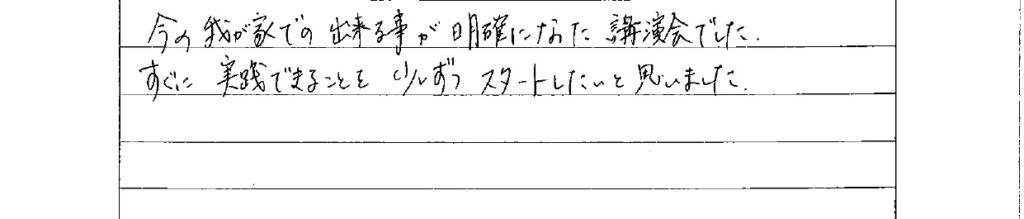 今の我が家での出来る事が明確になった講演会でした.
すぐに実践できることを少しずつスタートしたいと思いました.